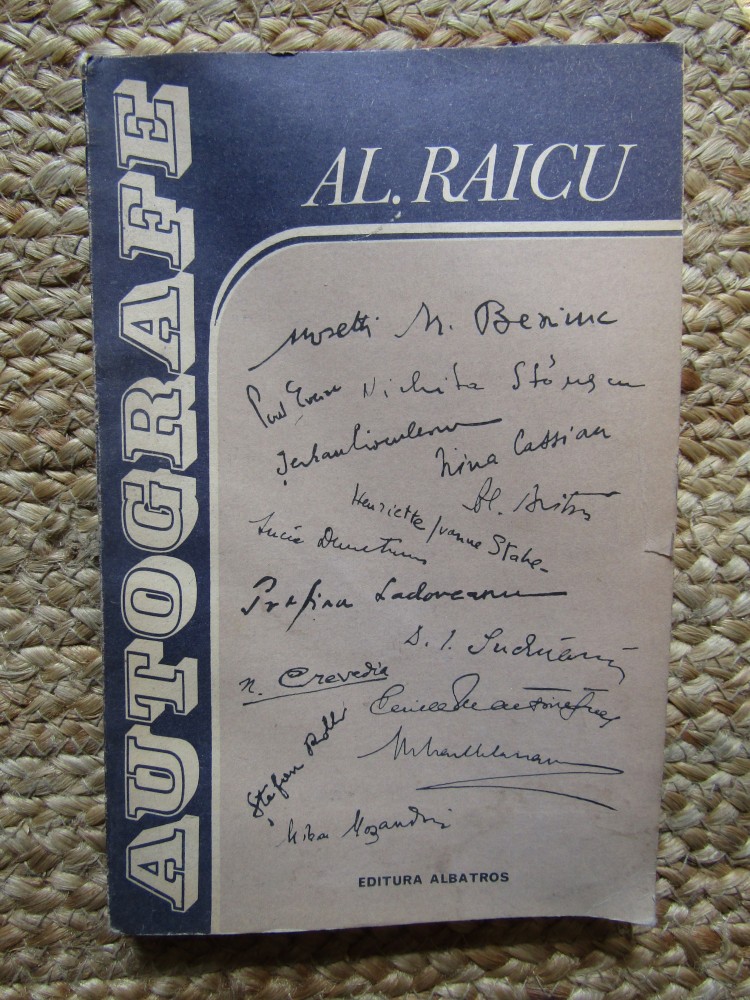 AUTOGRAFE
AL. RAICU
Rosetti M. Beniuc
Nichita Stănescu
Șerban Cioculescu
Nina Cassian
Henriette Yvonne Stahl
Lucia Demetrius
Profira Sadoveanu
D. I. Suchianu
N. Crevedia
Ștefan Roll
Mihai Moșandrei
EDITURA ALBATROS